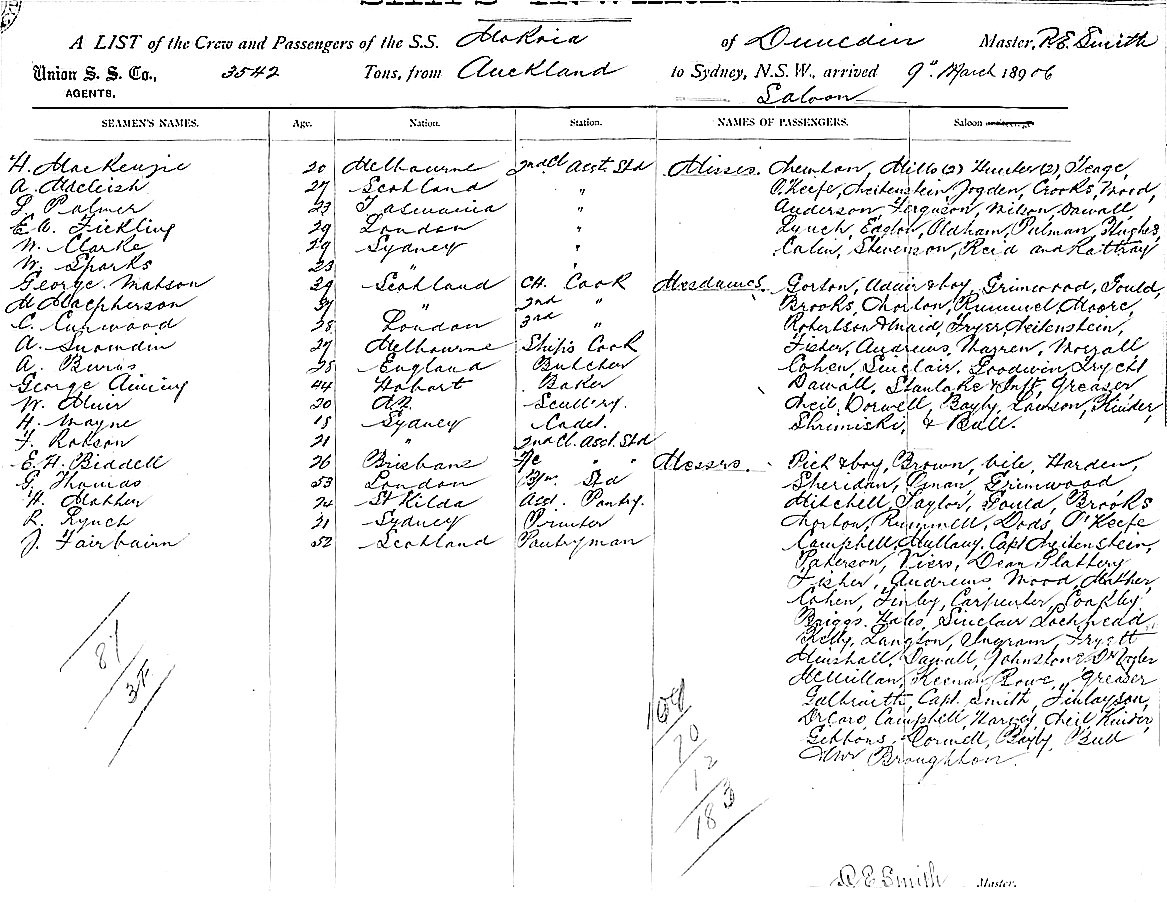 SHIPS INWARD.
A LIST of the Crew and Passengers of the S.S. Mokoia of Dunedin Master, R. E. Smith
Union S. S. Co., 3542 Tons, from Auckland to Sydney, N.S.W., arrived 9th March 1906
AGENTS. Saloon
SEAMEN'S NAMES. Age. Nation. Station. NAMES OF PASSENGERS. Saloon
H. MacKenzie 20 Melbourne 2nd Cl Asst. Std Misses. Hunter (2), Teage,
A. McLeish 27 Scotland " O'Keefe, Jogden, Crooks, Wood,
L. Palmer 23 Tasmania " Anderson, Ferguson, Wilson, Dawall
E. W. Fickling 29 London " Lynch, Eaglon, Oldham, Pulman, Hughes,
W. Clarke 29 Sydney " Stevenson, Reid and Rattray
W. Sparks 23 " "
George Matson 29 Scotland Ch. Cook Mesdames. Gorton, Adair & boy, Grimwood, Gould,
M Macpherson 37 " 2nd " Brooks, Rummel, Moore,
C. Curwood 28 London 3rd " Robertson & maid, Fryer,
A. Snowdin 27 Melbourne Ships Cook Fisher, Andrews, Warren,
A. Burns 28 England Butcher Cohen, Sinclair, Goodwin,
George Aiming 44 Hobart Baker Dawall, Stanlake & Inft, Greaser
W. Muir 20 N.Z. Scull'ry. Neil, Dorwell, Bayly, Lawson, Kinder,
H. Wayne 18 Sydney Cadet. Shrimiski, & Bull.
F. Robson 21 " 2nd Cl. Asst. Std
E. H. Biddell 26 Brisbane F/C " " Messrs. & boy, Brown, Harden,
G. Thomas 53 London Std Sheridan, Grimwood
H. Mather 24 St Kilda Ast. Pantry. Mitchell, Taylor, Gould, Brooks
R. Lynch 21 Sydney Printer Rummell, Dods, O'Keefe
J. Fairbairn 52 Scotland Pantryman Campbell, Mullany, Capt
Paterson, Viers, Dean Slattery
Fisher, Andrews, Wood, Mather,
Cohen, Finley, Carpenter, Coakley
Briggs, Hales, Sinclair, Lochhead
Kelly, Langton, Ingram, Fryett
Minshall, Dawall, Johnstone, Dr
McMillan, Keenan, Rowe, Greaser
Galbraith, Capt. Smith, Finlayson,
Dr Caro, Campbell, Harvey, Neil, Kinder,
Gibbons, Dorwell, Bayly, Bull
Broughton.
81
104
20
12
183
R. E Smith Master.